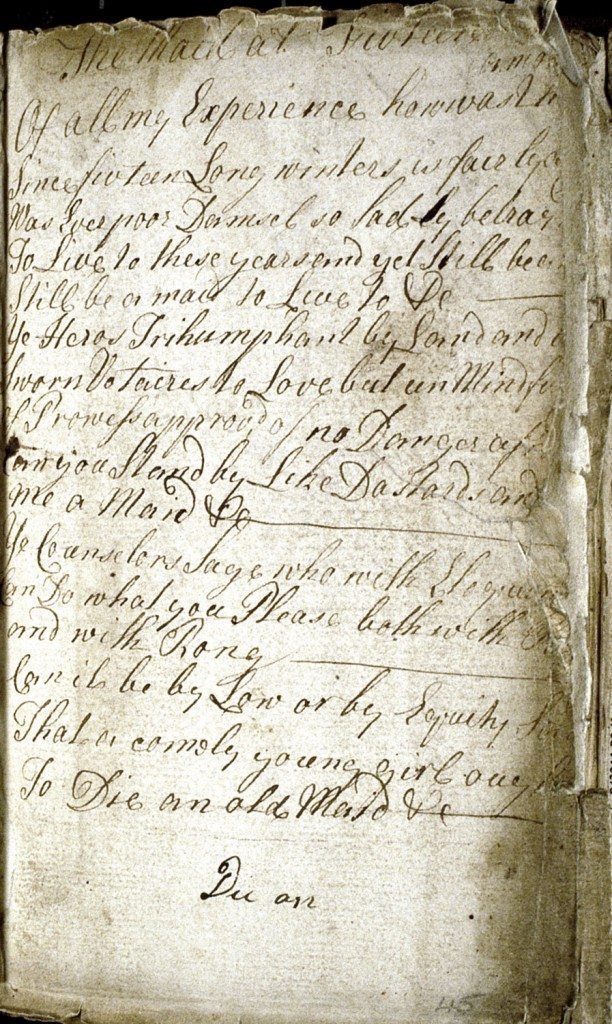 The Maid at
Of all my Experience how vast
Since fivteen Long winters is fairly
Was Ever poor Damsel so Sadly betray
To Live to these years and yet Still be a
Still be a maid to Live to &c
Ye Heros Trihumphant by Land and
Sworn Votaires to Love but un Mindfu
of Prowess approvd of no Danger afr
Can you Stand by Like Dastards and
me a Maid &c
Ye Counselors Sage who with Eloquen
Can Do what you Please both with
and with Rong
Can it be by Law or by Equity
That a comely young girl ough
To Die an old Maid &c
Die an
45